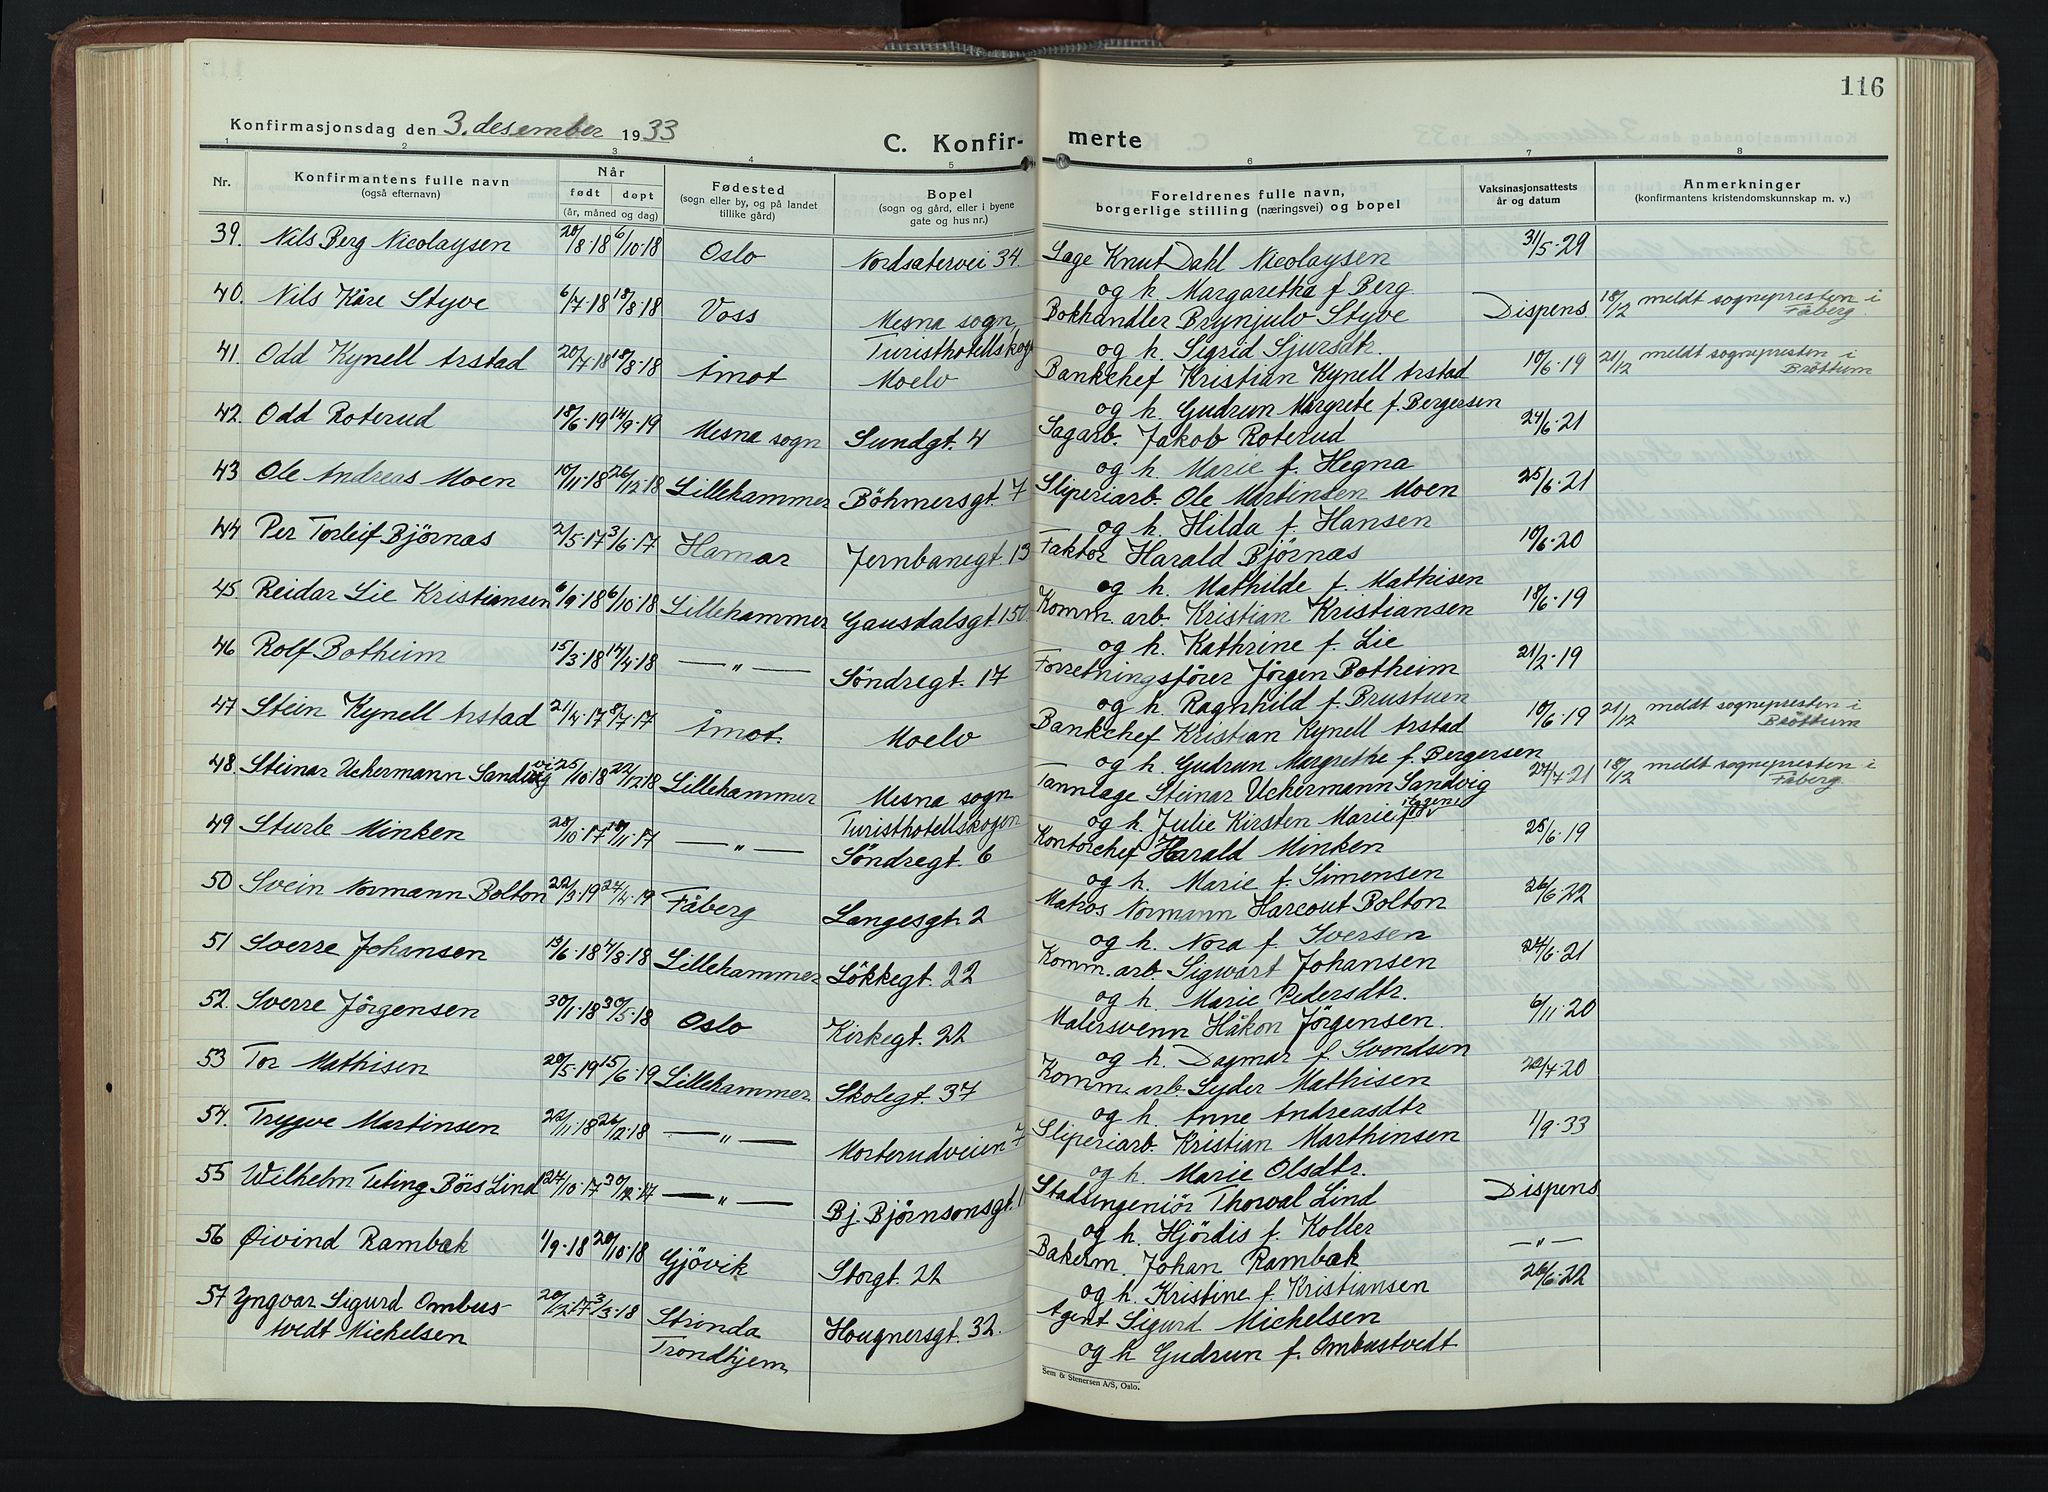 116
Konfirmasjonsdag den 3. desember 1933
C. Konfir-
merte
1 2 3 4 5 6 7 8
Nr. Konfirmantens fulle navn (også efternavn) Når født døpt (år, måned og dag) Fødested (sogn eller by, og på landet tillike gård) Bopel (sogn og gård, eller i byene gate og hus nr.) Foreldrenes fulle navn, borgerlige stilling (næringsvei) og bopel Vaksinasjonsattests år og datum Anmerkninger (konfirmantens kristendomskunnskap m. v.)
39. Nils Berg Nicolaysen 20/8-18 6/10-18 Oslo Nordsætervei 34 Læge Knut Dahl Nicolaysen 31/5-29
og h. Margaretha f. Berg
40. Nils Kåre Styve 6/7-18 18/8-18 Voss Mesna sogn, Turisthotellskogn Bokhandler Brynjulv Styve Dispens 18/12 meldt sognepresten i Fåberg
og h. Sigrid Sjursdtr.
41 Odd Kynell Årstad 20/7-18 18/8-18 Åmot Moelv Bankchef Kristian Kynell Årstad 10/6-19 21/12 meldt sognepresten i Brøttum
og h. Gudrun Margrete f. Bergersen
42. Odd Roterud 18/6-19 14/9-19 Mesna sogn Sundgt. 4 Sagarb. Jakob Roterud 24/6-21
og h. Marie f. Hegna
43 Ole Andreas Moen 10/11-18 26/12-18 Lillehammer Böhmersgt. 7 Sliperiarb. Ole Martinsen Moen 25/6-21
og h. Hilda f. Hansen
44 Per Torleif Bjørnås 2/5-17 3/6-17 Hamar Jernbanegt. 13 Faktor Harald Bjørnås 10/6-20
og h. Mathilde f. Mathisen
45 Reidar Lie Kristiansen 6/9-18 6/10-18 Lillehammer Gausdalsgt. 150. Komm. arb. Kristian Kristiansen 18/6-19
og h. Kathrine f. Lie
46 Rolf Botheim 15/3-18 14/4-18 — " — Söndregt. 17 Forretningsfører Jørgen Botheim 21/2-19
og h. Ragnhild f. Brustuen
47 Stein Kynell Årstad 21/4-17 8/7-17 Åmot. Moelv Bankchef Kristian Kynell Årstad 10/6-19 21/12 meldt sognepresten i Brøttum
og h. Gudrun Margrethe f. Bergersen
48. Steinar Uckermann Sandvig 25/10-18 22/12-18 Lillehammer Mesna sogn Turisthotellskogen Tannlæge Steinar Uckermann Sandvig 24/7-21 18/12 meldt sognepresten i Fåberg
og h. Julie Kirsten Marie
49 Sturle Minken 28/10-17 18/11-17 — " — Söndregt. 6 Kontorchef Harald Minken 25/6-19
og h. Marie f. Simensen
50 Svein Normann Bolton 22/3-19 27/4-19 Fåberg Langesgt. 2 Matros Normann Harcout Bolton 26/6-22
og h. Nora f. Iversen
51 Sverre Johansen 13/6-18 4/8-18 Lillehammer Lökkegt. 22 Komm. arb. Sigwart Johansen 24/6-21
og h. Marie Pedersdtr.
52. Sverre Jörgensen 30/1-18 30/5-18 Oslo Kirkegt. 22 Malersvenn Håkon Jörgensen. 6/11-20
og h. Dagmar f. Svendsen
53 Tor Mathisen 20/5-19 15/6-19 Lillehammer Skolegt. 37 Komm. arb. Syder Mathisen 22/7-20
og h. Anne Andreasdtr
54. Trygve Martinsen 22/1-18 26/2-18 — " — Morterudveien 7 Sliperiarb. Kristian Marthinsen 1/9-33
og h. Marie Olsdtr.
55 Wilhelm Teting Börs Lind 27/10-17 30/12-17 — " — Bj. Björnsonsgt. 11 Stadsingeniör Thorval Lind Dispens
og h. Hjördis f. Koller
56 Øivind Rambæk 1/9-18 20/10-18 Gjövik Storgt. 22 Bakerm. Johan Rambæk — " —
og h. Kristine f. Kristiansen
57 Yngvar Sigurd Ombus- 20/12-17 3/3-18 Strinda Hougnersgt. 32. Agent Sigurd Michelsen 26/6-22
tvedt Michelsen Trondhjem og h Gudrun f. Ombustvedt
Sem & Stenersen A/S, Oslo.